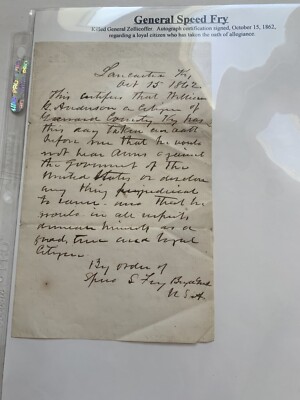 General Speed Fry
Killed General Zollicoffer. Autograph certification signed, October 15, 1862,
regarding a loyal citizen who has taken the oath of allegiance
Lancaster Ky
Oct 15 1862
This certifies that William
G. Anderson a Citizen of
Garrard County Ky has
this day taken an oath
before me that he would
not bear Arms against
the government of the
United States or disclose
any thing prejudicial
to same and that he
would in all respects
himself as a
good, true and loyal
Citizen
By order of
S Fry Brig Genl
U S A